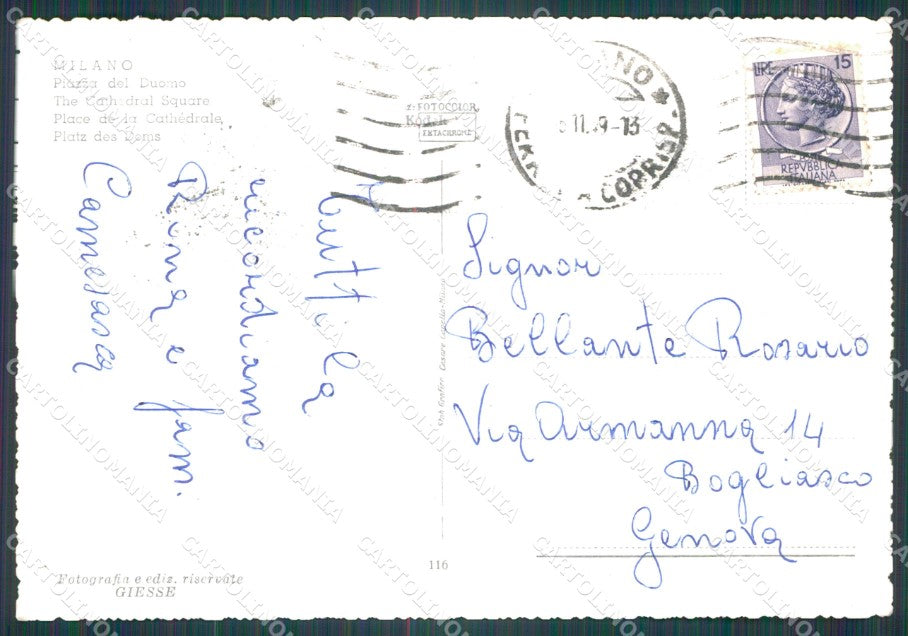 MILANO
Piazza del Duomo
The Cathedral Square
Place de la Cathédrale
Platz des Doms
FOTOCOLOR
Kodak
EKTACHROME
NO
II. 9-13
COPRISP.
LIRE 15
REPVBBLICA
ITALIANA
Tutti la
ricordiamo
Rina e fam.
Carnesasca
Signor
Bellante Rosario
Via Armanna 14
Bogliasco
Genova
116
Fotografia e ediz. riservate
GIESSE
CARTOLINOMANIA